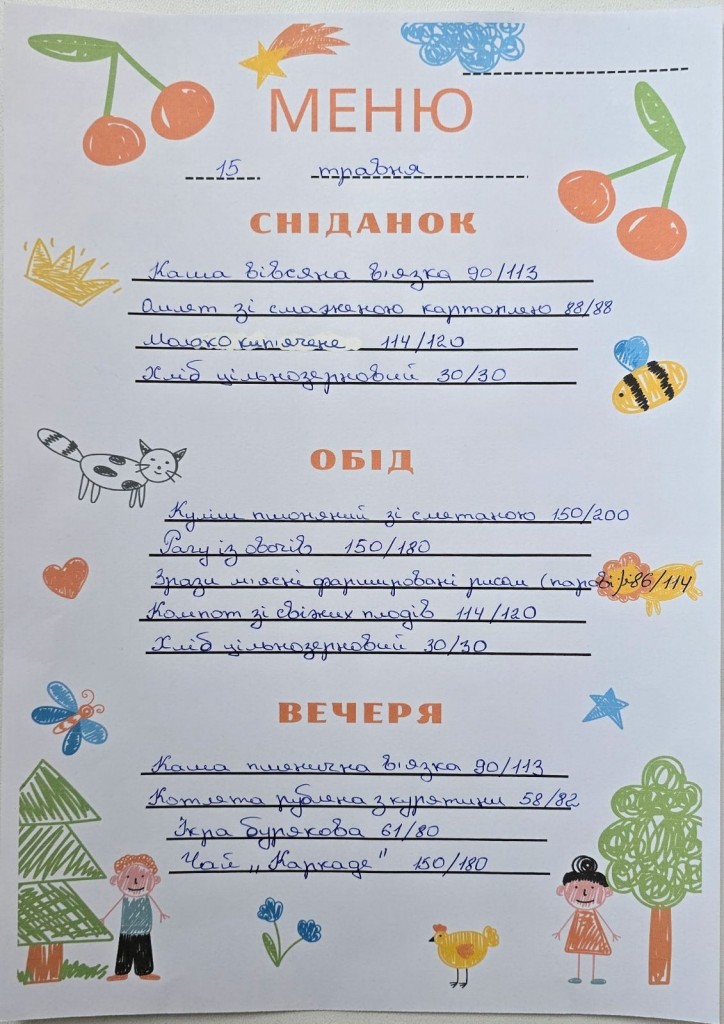 МЕНЮ
15 травня
СНІДАНОК
Каша вівсяна в'язка 90/113
Омлет зі смаженою картоплею 88/88
Молоко кип'ячене 114/120
Хліб цільнозерновий 30/30
ОБІД
Куліш пшоняний зі сметаною 150/200
Рагу із овочів 150/180
Зрази м'ясні фаршировані рисом (парові) 86/114
Компот зі свіжих плодів 114/120
Хліб цільнозерновий 30/30
ВЕЧЕРЯ
Каша пшенична в'язка 90/113
Котлета рублена з курятини 58/82
Ікра бурякова 61/80
Чай „Каркаде" 150/180